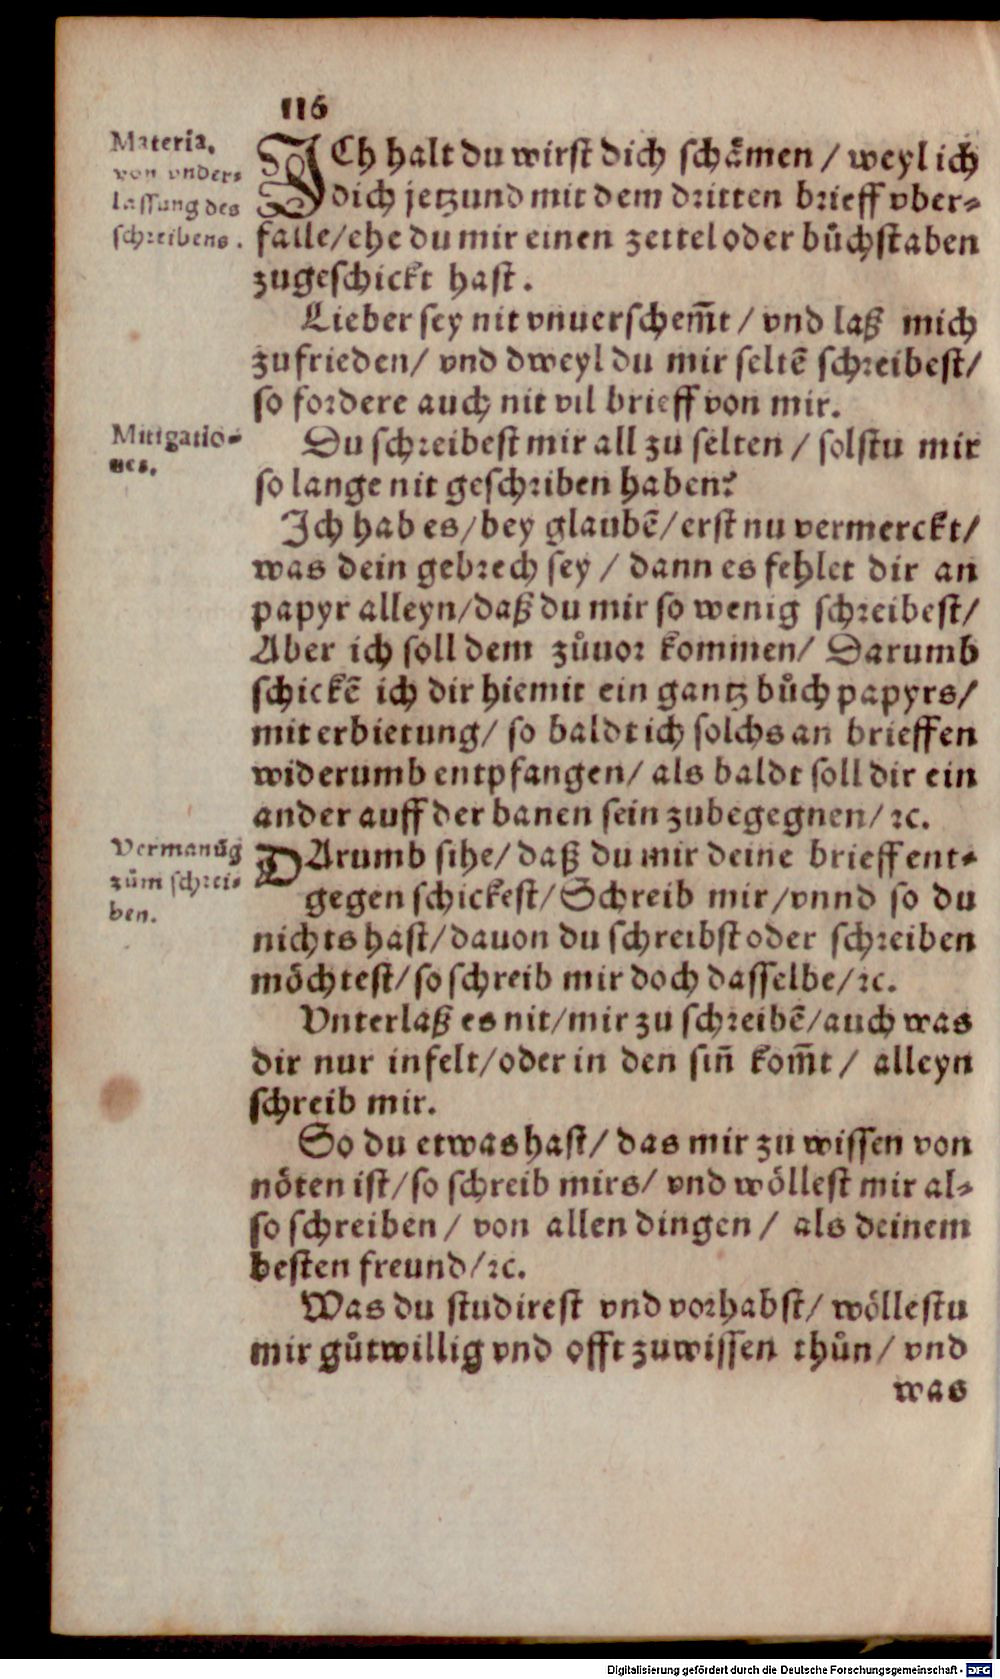 116
Materia.
von vnder⸗
lassung des
schreibens.
ICh halt du wirst dich schämen / weyl ich
dich jetzund mit dem dritten brieff vber⸗
falle/ ehe du mir einen zettel oder bůchstaben
zugeschickt hast.
Lieber sey nit vnuerschem̃t / vnd laß mich
zufrieden/ vnd dweyl du mir seltẽ schreibest/
so fordere auch nit vil brieff von mir.
Mitigatio⸗
nes.
Du schreibest mir all zu selten / solstu mir
so lange nit geschriben haben?
Ich hab es/ bey glaubẽ/ erst nu vermerckt/
was dein gebrech sey / dann es fehlet dir an
papyr alleyn/ daß du mir so wenig schreibest/
Aber ich soll dem zůuor kommen/ Darumb
schickẽ ich dir hiemit ein gantz bůch papyrs/
mit erbietung/ so baldt ich solchs an brieffen
widerumb entpfangen/ als baldt soll dir ein
ander auff der banen sein zubegegnen/ ꝛc.
Vermanũg
zům schrei⸗
ben.
DArumb sihe/ daß du mir deine brieff ent⸗
gegen schickest/ Schreib mir / vnnd so du
nichts hast/ dauon du schreibst oder schreiben
möchtest/ so schreib mir doch dasselbe/ ꝛc.
Vnterlaß es nit/ mir zu schreibẽ/ auch was
dir nur infelt/ oder in den siñ kom̃t / alleyn
schreib mir.
So du etwas hast/ das mir zu wissen von
nöten ist/ so schreib mirs/ vnd wöllest mir al⸗
so schreiben / von allen dingen / als deinem
besten freund/ ꝛc.
Was du studirest vnd vorhabst/ wöllestu
mir gůtwillig vnd offt zuwissen thůn/ vnd
was
Digitalisierung gefördert durch die Deutsche Forschungsgemeinschaft - DFG